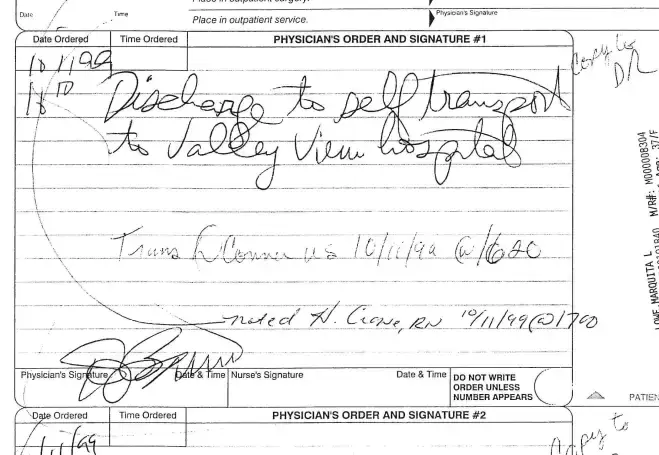 Place in outpatient surgery.
Date Time
Place in outpatient service.
Physician's Signature
Date Ordered Time Ordered PHYSICIAN'S ORDER AND SIGNATURE #1
10/11/99
Discharge to self transport
to Valley View hospital
Copy to
DR
Trans R Conner US 10/11/99 @ 1620
noted N. Crone, RN 10/11/99 @ 1700
Physician's Signature Date & Time Nurse's Signature Date & Time
DO NOT WRITE
ORDER UNLESS
NUMBER APPEARS
PATIEN
Date Ordered Time Ordered PHYSICIAN'S ORDER AND SIGNATURE #2
Copy to
LOWE, MARQUITA L M/R#: M000008304
37/F